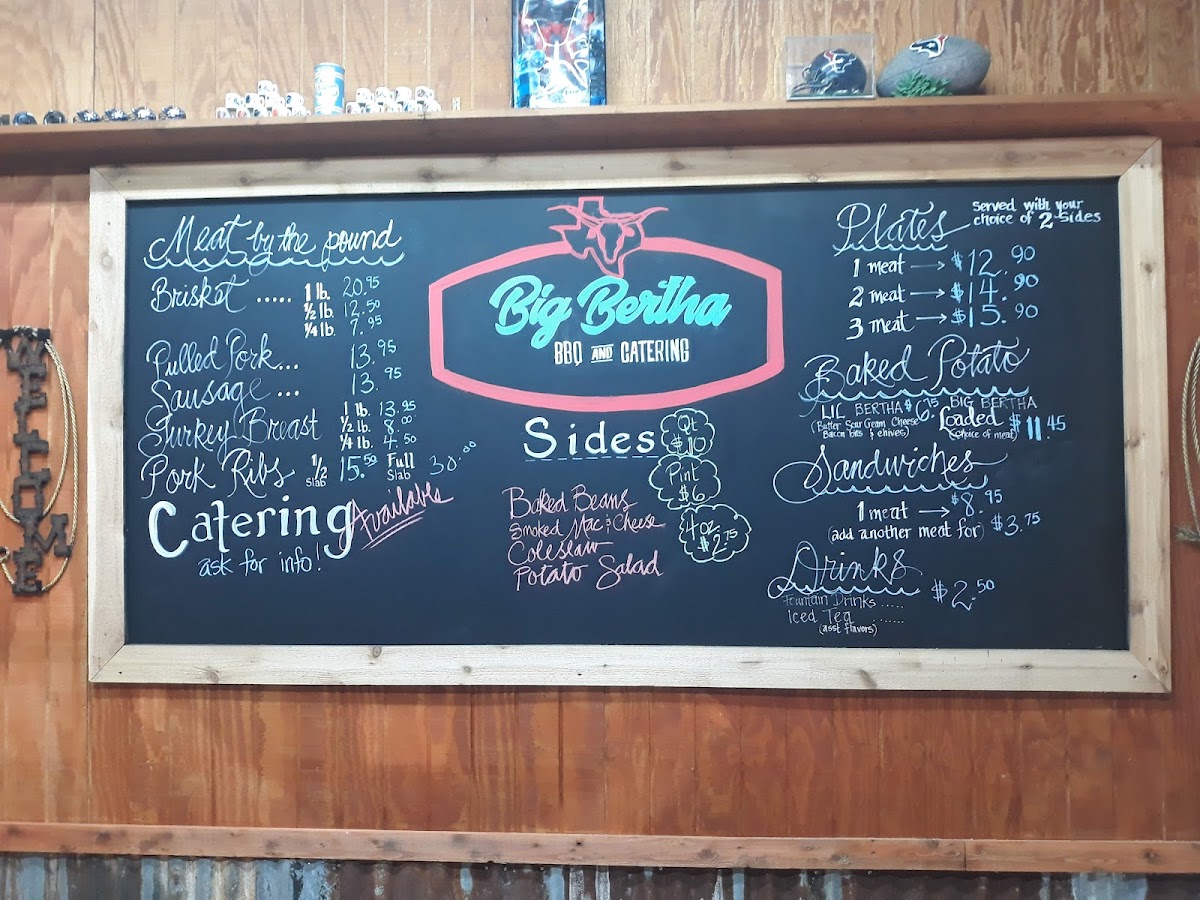 WELCOME
Meat by the pound
Brisket ..... 1 lb. 20.95
½ lb. 12.50
¼ lb. 7.95
Pulled Pork... 13.95
Sausage ... 13.95
Turkey Breast 1 lb. 13.95
½ lb. 8.00
¼ lb. 4.50
Pork Ribs ½ Slab 15.50 Full Slab 30.00
Catering Available
ask for info!
Big Bertha
BBQ AND CATERING
Sides
Qt $10
Pint $6
4oz $2.75
Baked Beans
Smoked Mac & Cheese
Coleslaw
Potato Salad
Plates Served with your
choice of 2 sides
1 meat → $12.90
2 meat → $14.90
3 meat → $15.90
Baked Potato
LIL BERTHA $6.75
(Butter Sour Cream Cheese
Bacon bits & chives)
BIG BERTHA
Loaded $11.45
(choice of meat)
Sandwiches
1 meat → $8.95
(add another meat for) $3.75
Drinks $2.50
Fountain Drinks .....
Iced Tea .......
(asst flavors)